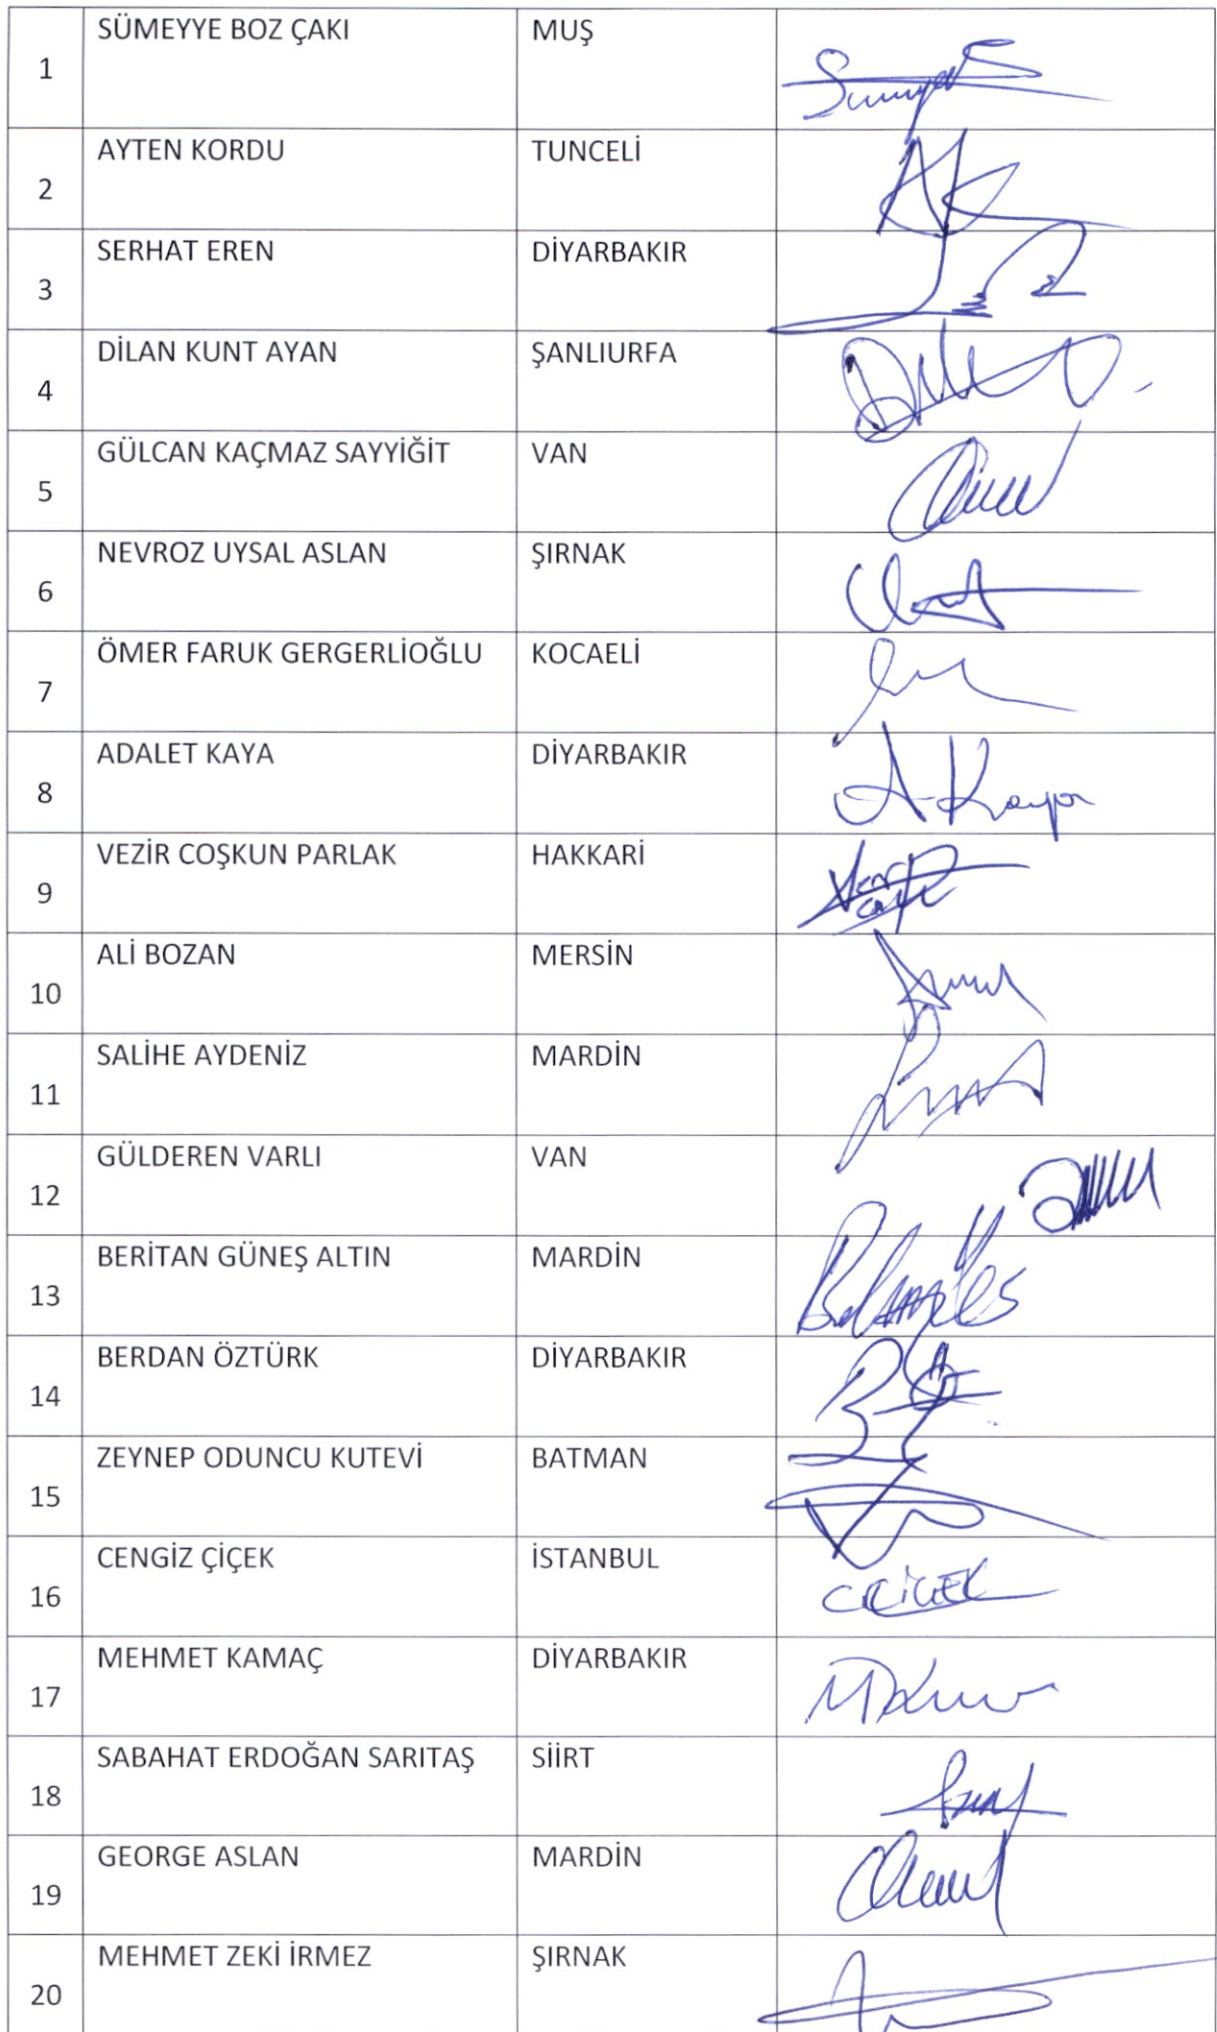 1 SÜMEYYE BOZ ÇAKI MUŞ
2 AYTEN KORDU TUNCELİ
3 SERHAT EREN DİYARBAKIR
4 DİLAN KUNT AYAN ŞANLIURFA
5 GÜLCAN KAÇMAZ SAYYİĞİT VAN
6 NEVROZ UYSAL ASLAN ŞIRNAK
7 ÖMER FARUK GERGERLİOĞLU KOCAELİ
8 ADALET KAYA DİYARBAKIR A-Kaya
9 VEZİR COŞKUN PARLAK HAKKARİ
10 ALİ BOZAN MERSİN
11 SALİHE AYDENİZ MARDİN
12 GÜLDEREN VARLI VAN
13 BERİTAN GÜNEŞ ALTIN MARDİN
14 BERDAN ÖZTÜRK DİYARBAKIR
15 ZEYNEP ODUNCU KUTEVİ BATMAN
16 CENGİZ ÇİÇEK İSTANBUL
17 MEHMET KAMAÇ DİYARBAKIR
18 SABAHAT ERDOĞAN SARITAŞ SİİRT
19 GEORGE ASLAN MARDİN
20 MEHMET ZEKİ İRMEZ ŞIRNAK